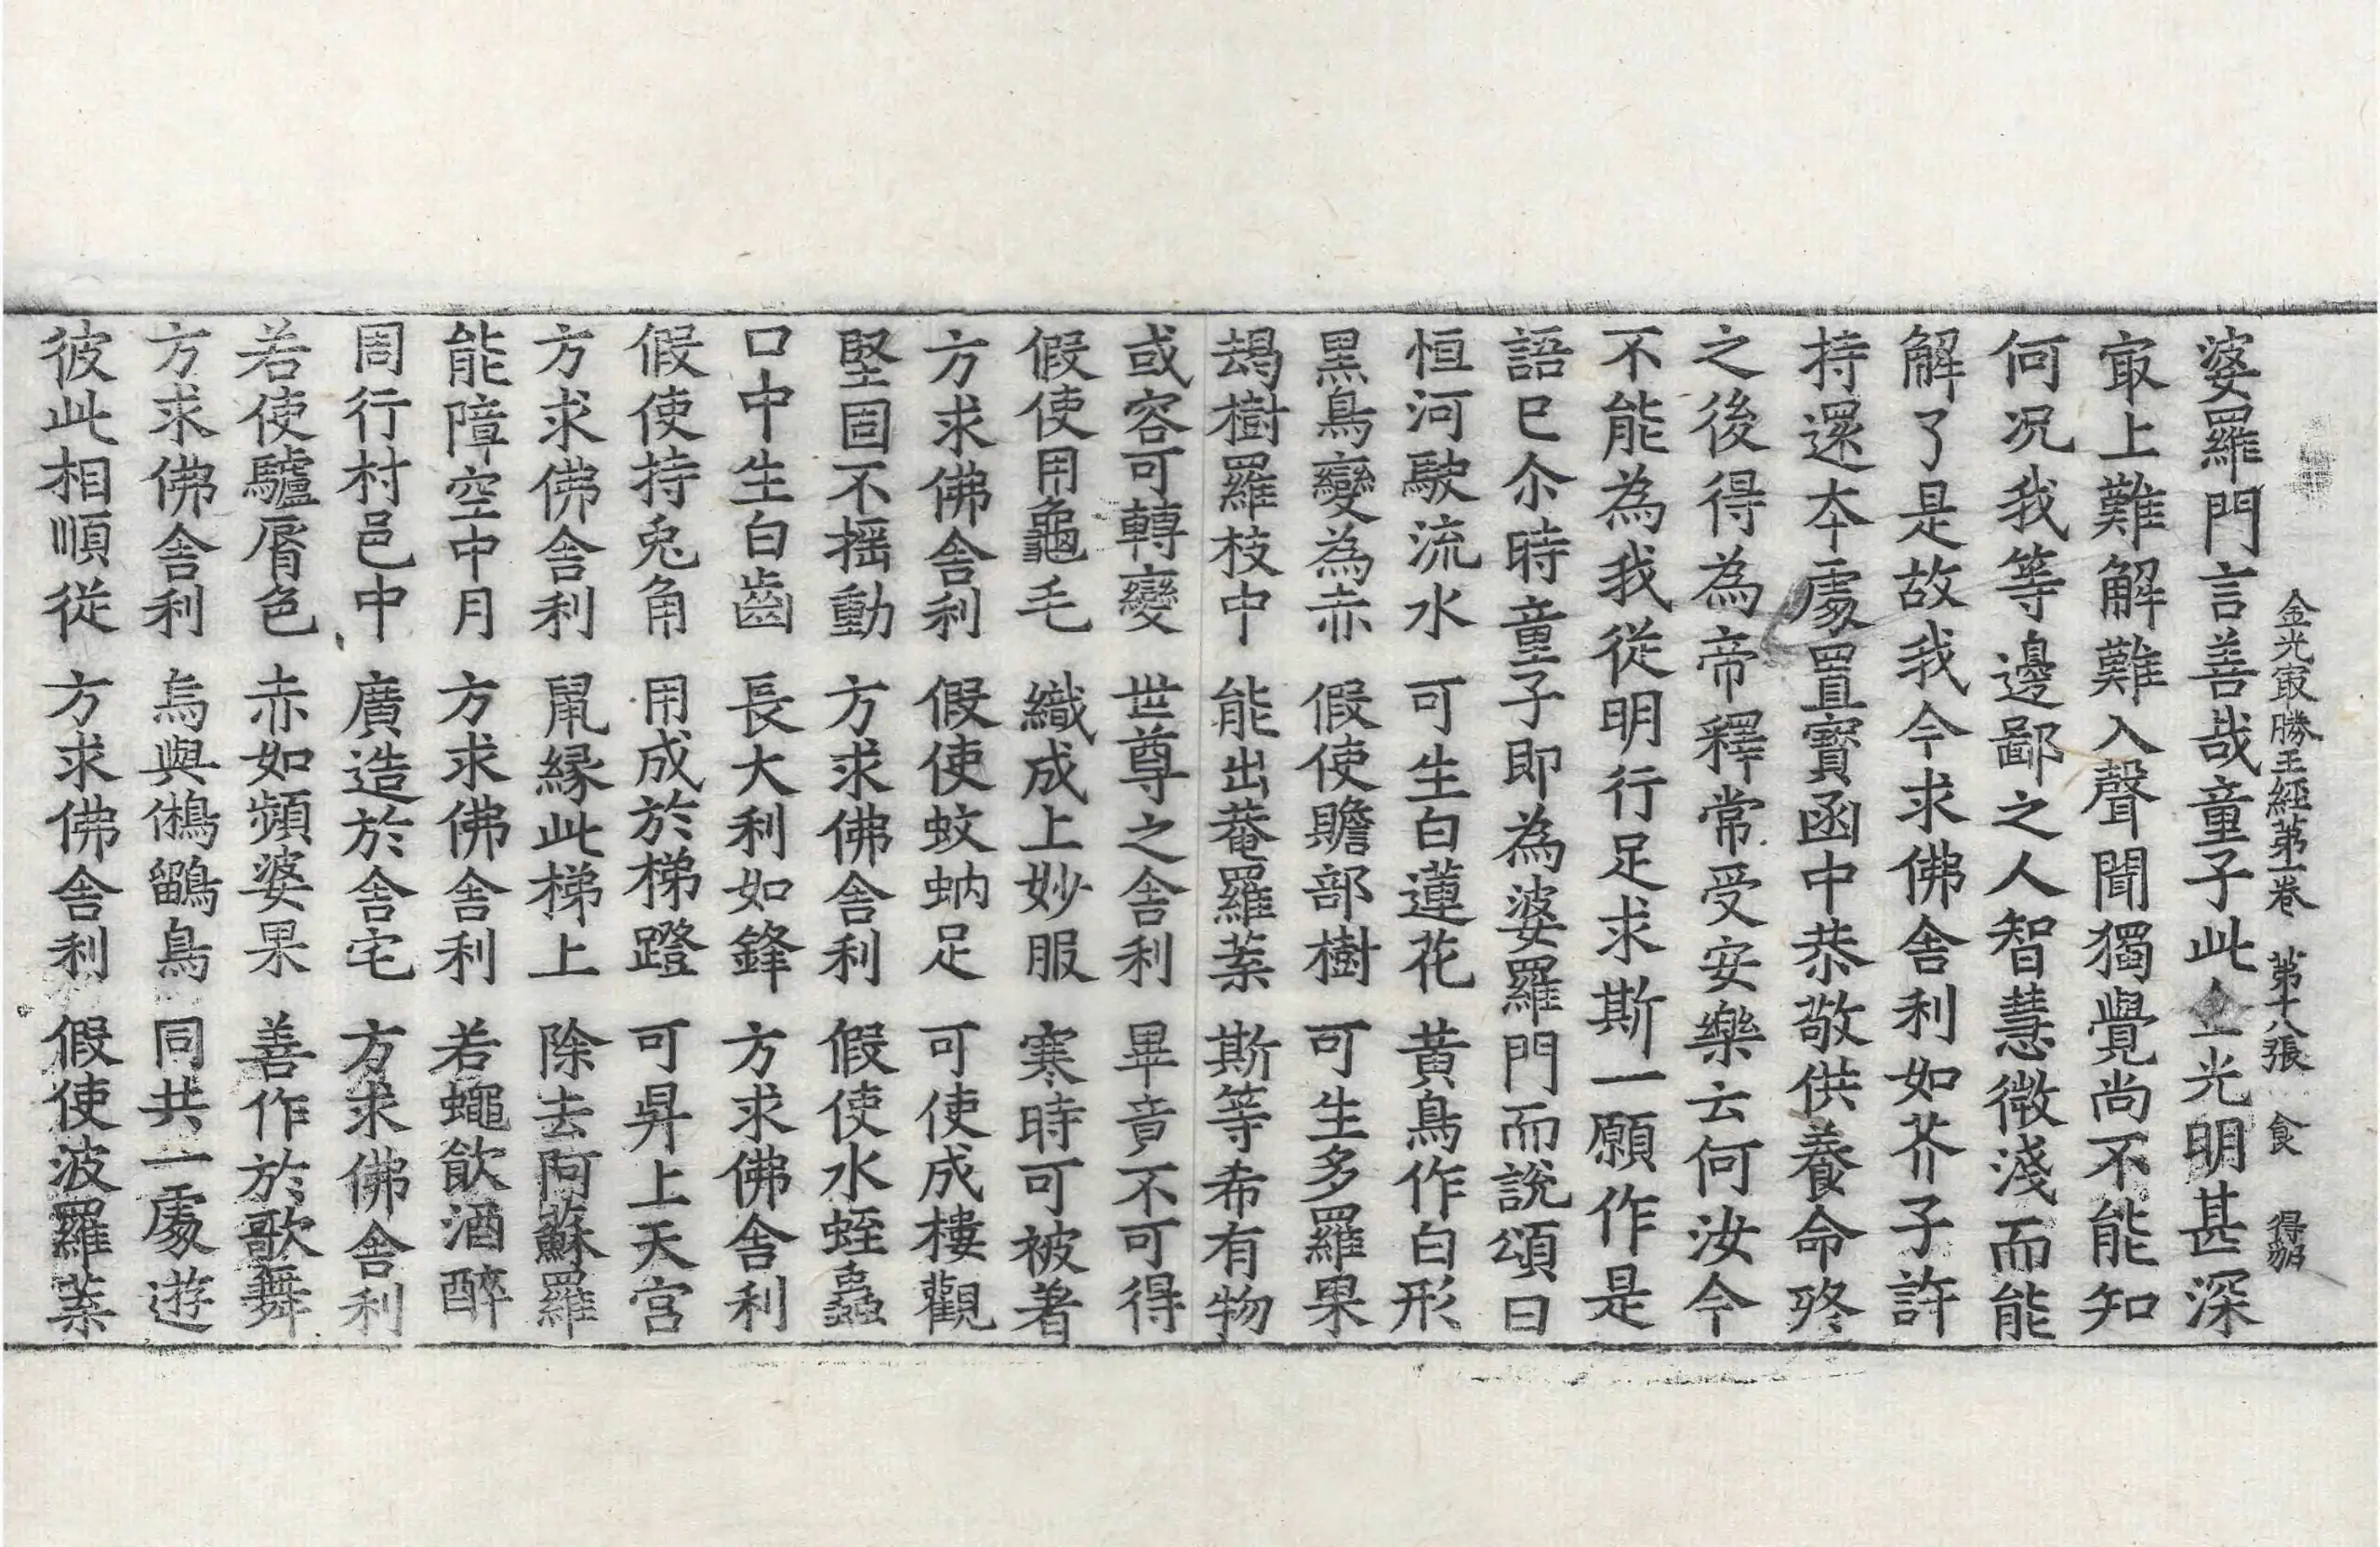 金光㝡勝王經第一卷 第十八張 食 得貂
婆羅門言善哉童子此金光明甚深
㝡上難解難入聲聞獨覺尚不能知
何況我等邊鄙之人智慧微淺而能
解了是故我今求佛舍利如芥子許
持還本處置寶函中恭敬供養命終
之後得為帝釋常受安樂云何汝今
不能為我從明行足求斯一願作是
語已尒時童子即為婆羅門而說頌曰
恒河駛流水 可生白蓮花 黃鳥作白形
黑鳥變為赤 假使贍部樹 可生多羅果
朅樹羅枝中 能出菴羅葉 斯等希有物
或容可轉變 世尊之舍利 畢竟不可得
假使用龜毛 織成上妙服 寒時可被著
方求佛舍利 假使蚊蚋足 可使成樓觀
堅固不搖動 方求佛舍利 假使水蛭蟲
口中生白齒 長大利如鋒 方求佛舍利
假使持兔角 用成於梯蹬 可昇上天宮
方求佛舍利 鼠緣此梯上 除去阿蘇羅
能障空中月 方求佛舍利 若蠅飲酒醉
周行村邑中 廣造於舍宅 方求佛舍利
若使驢脣色 赤如頻婆果 善作於歌舞
方求佛舍利 烏與鵂鶹鳥 同共一處遊
彼此相順從 方求佛舍利 假使波羅葉